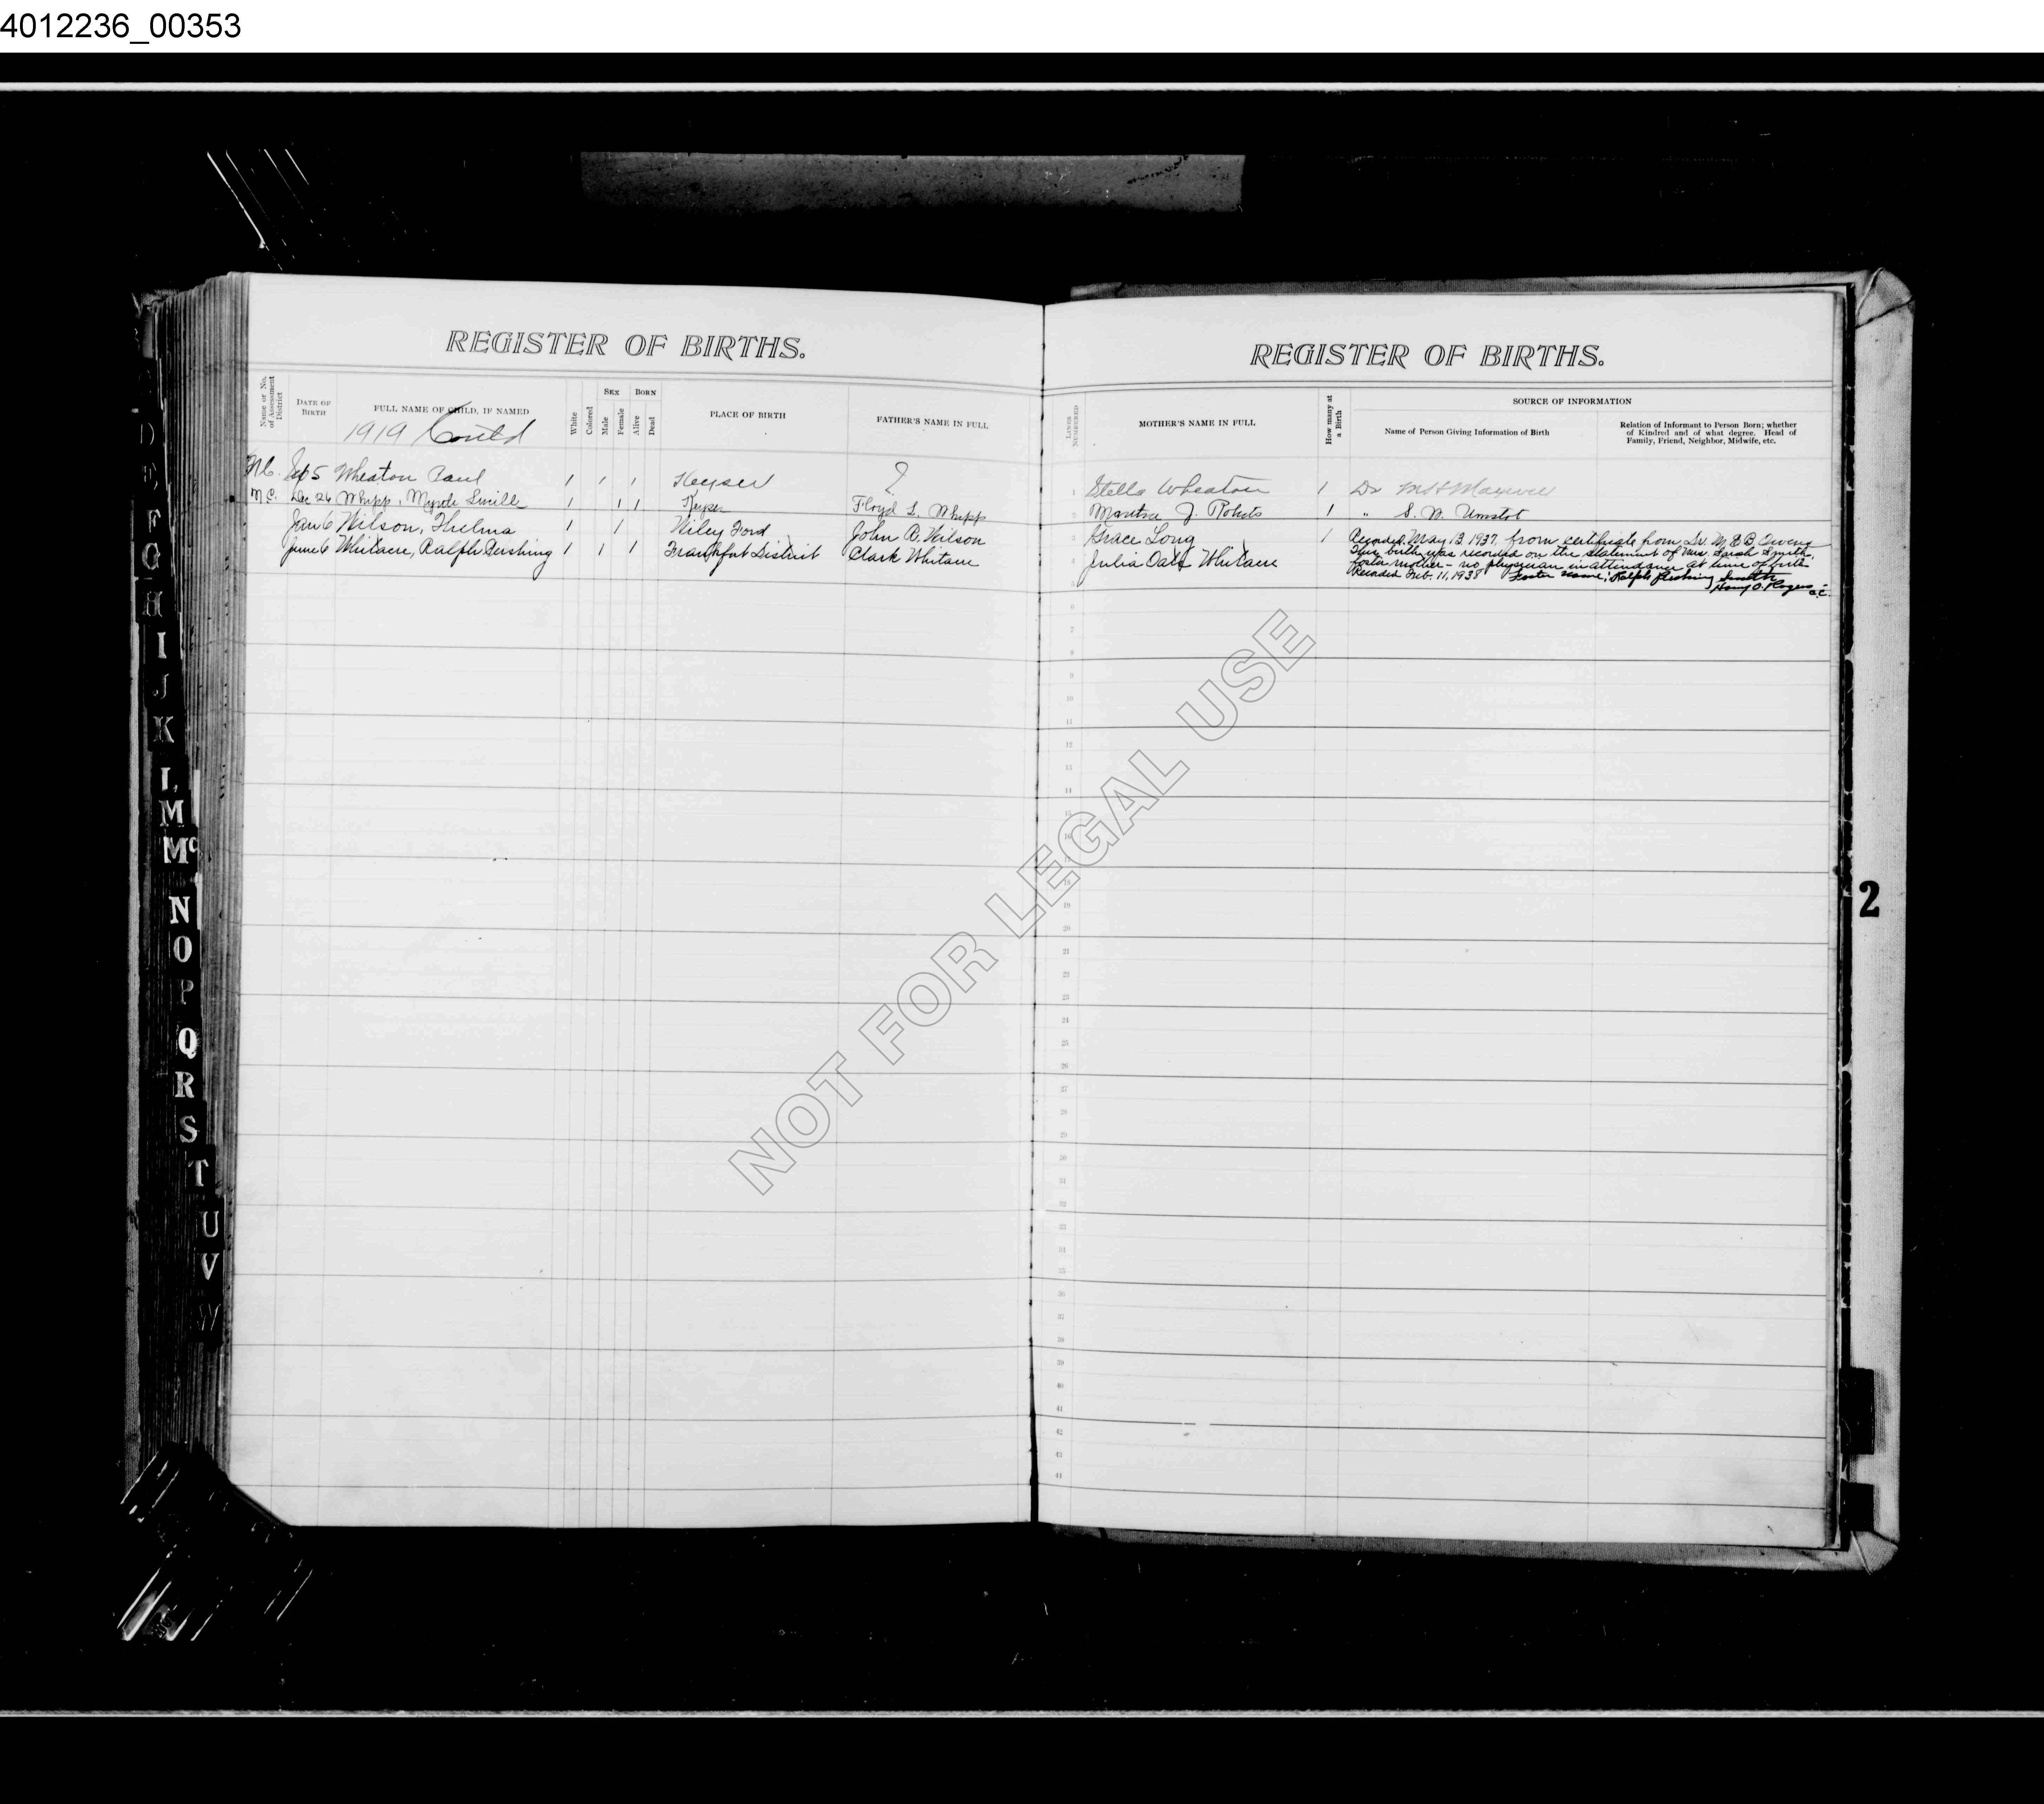 4012236_00353
REGISTER OF BIRTHS.
Name or No. of Assessment District
DATE OF BIRTH
FULL NAME OF CHILD, IF NAMED
1919 Contd
White
Colored
SEX
Male
Female
BORN
Alive
Dead
PLACE OF BIRTH
FATHER'S NAME IN FULL
5 Wheaton Paul 1 1 1 Keyser ?
M.C. Dec 26 Whipp, Myrtle 1 1 1 Keyser Floyd L. Whipp
Jan 6 Wilson, Thelma 1 1 Wiley Ford John A. Wilson
June 6 Whitacre, Ralph Pershing 1 1 1 Frankfort District Clark Whitacre
REGISTER OF BIRTHS.
LINES NUMBERED
MOTHER'S NAME IN FULL
How many at a Birth
SOURCE OF INFORMATION
Name of Person Giving Information of Birth
Relation of Informant to Person Born; whether of Kindred and of what degree. Head of Family, Friend, Neighbor, Midwife, etc.
1 Stella Wheaton 1 Dr M H Maxwell
2 J. Roberts 1 " Umstot
3 Grace Long 1 Recorded May 13, 1937, from certificate from Dr.
This birth was recorded on the statement of Mrs. Smith,
4 Julia Whitacre foster mother - no physician in attendance at time of birth
5 Recorded Feb. 11, 1938 Foster name: Ralph Pershing Smith
Rogers C.C.
6
7
8
9
10
11
12
13
14
15
16
17
18
19
20
21
22
23
24
25
26
27
28
29
30
31
32
33
34
35
36
37
38
39
40
41
42
43
44
D
E
F
G
H
I
J
K
L
M
Mc
N
O
P
Q
R
S
T
U
V
W
2
NOT FOR LEGAL USE